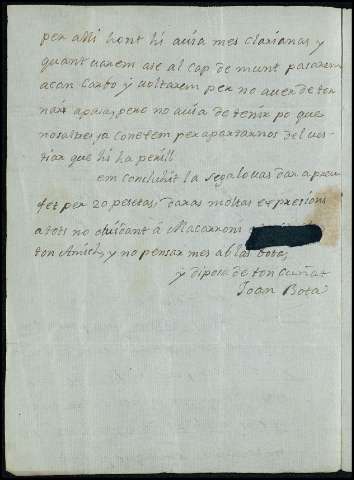 per alli hont hi avia mes clarianas y
quant varem ase al cap de munt pasarem
acan Canto y voltarem per no aver de tor
nar apasar, pero no avia de tenir po que
nosaltres ja conetem per apartarnos del ves
tiar que hi ha perill
em concluhit la segalouas dar a preu
fet per 20 pesetas, daras moltas expresions
a tots no olvidant á Macarroni
ton Amich, y no pensar mes ab las botas
y diposa de ton cuñat
Joan Bota